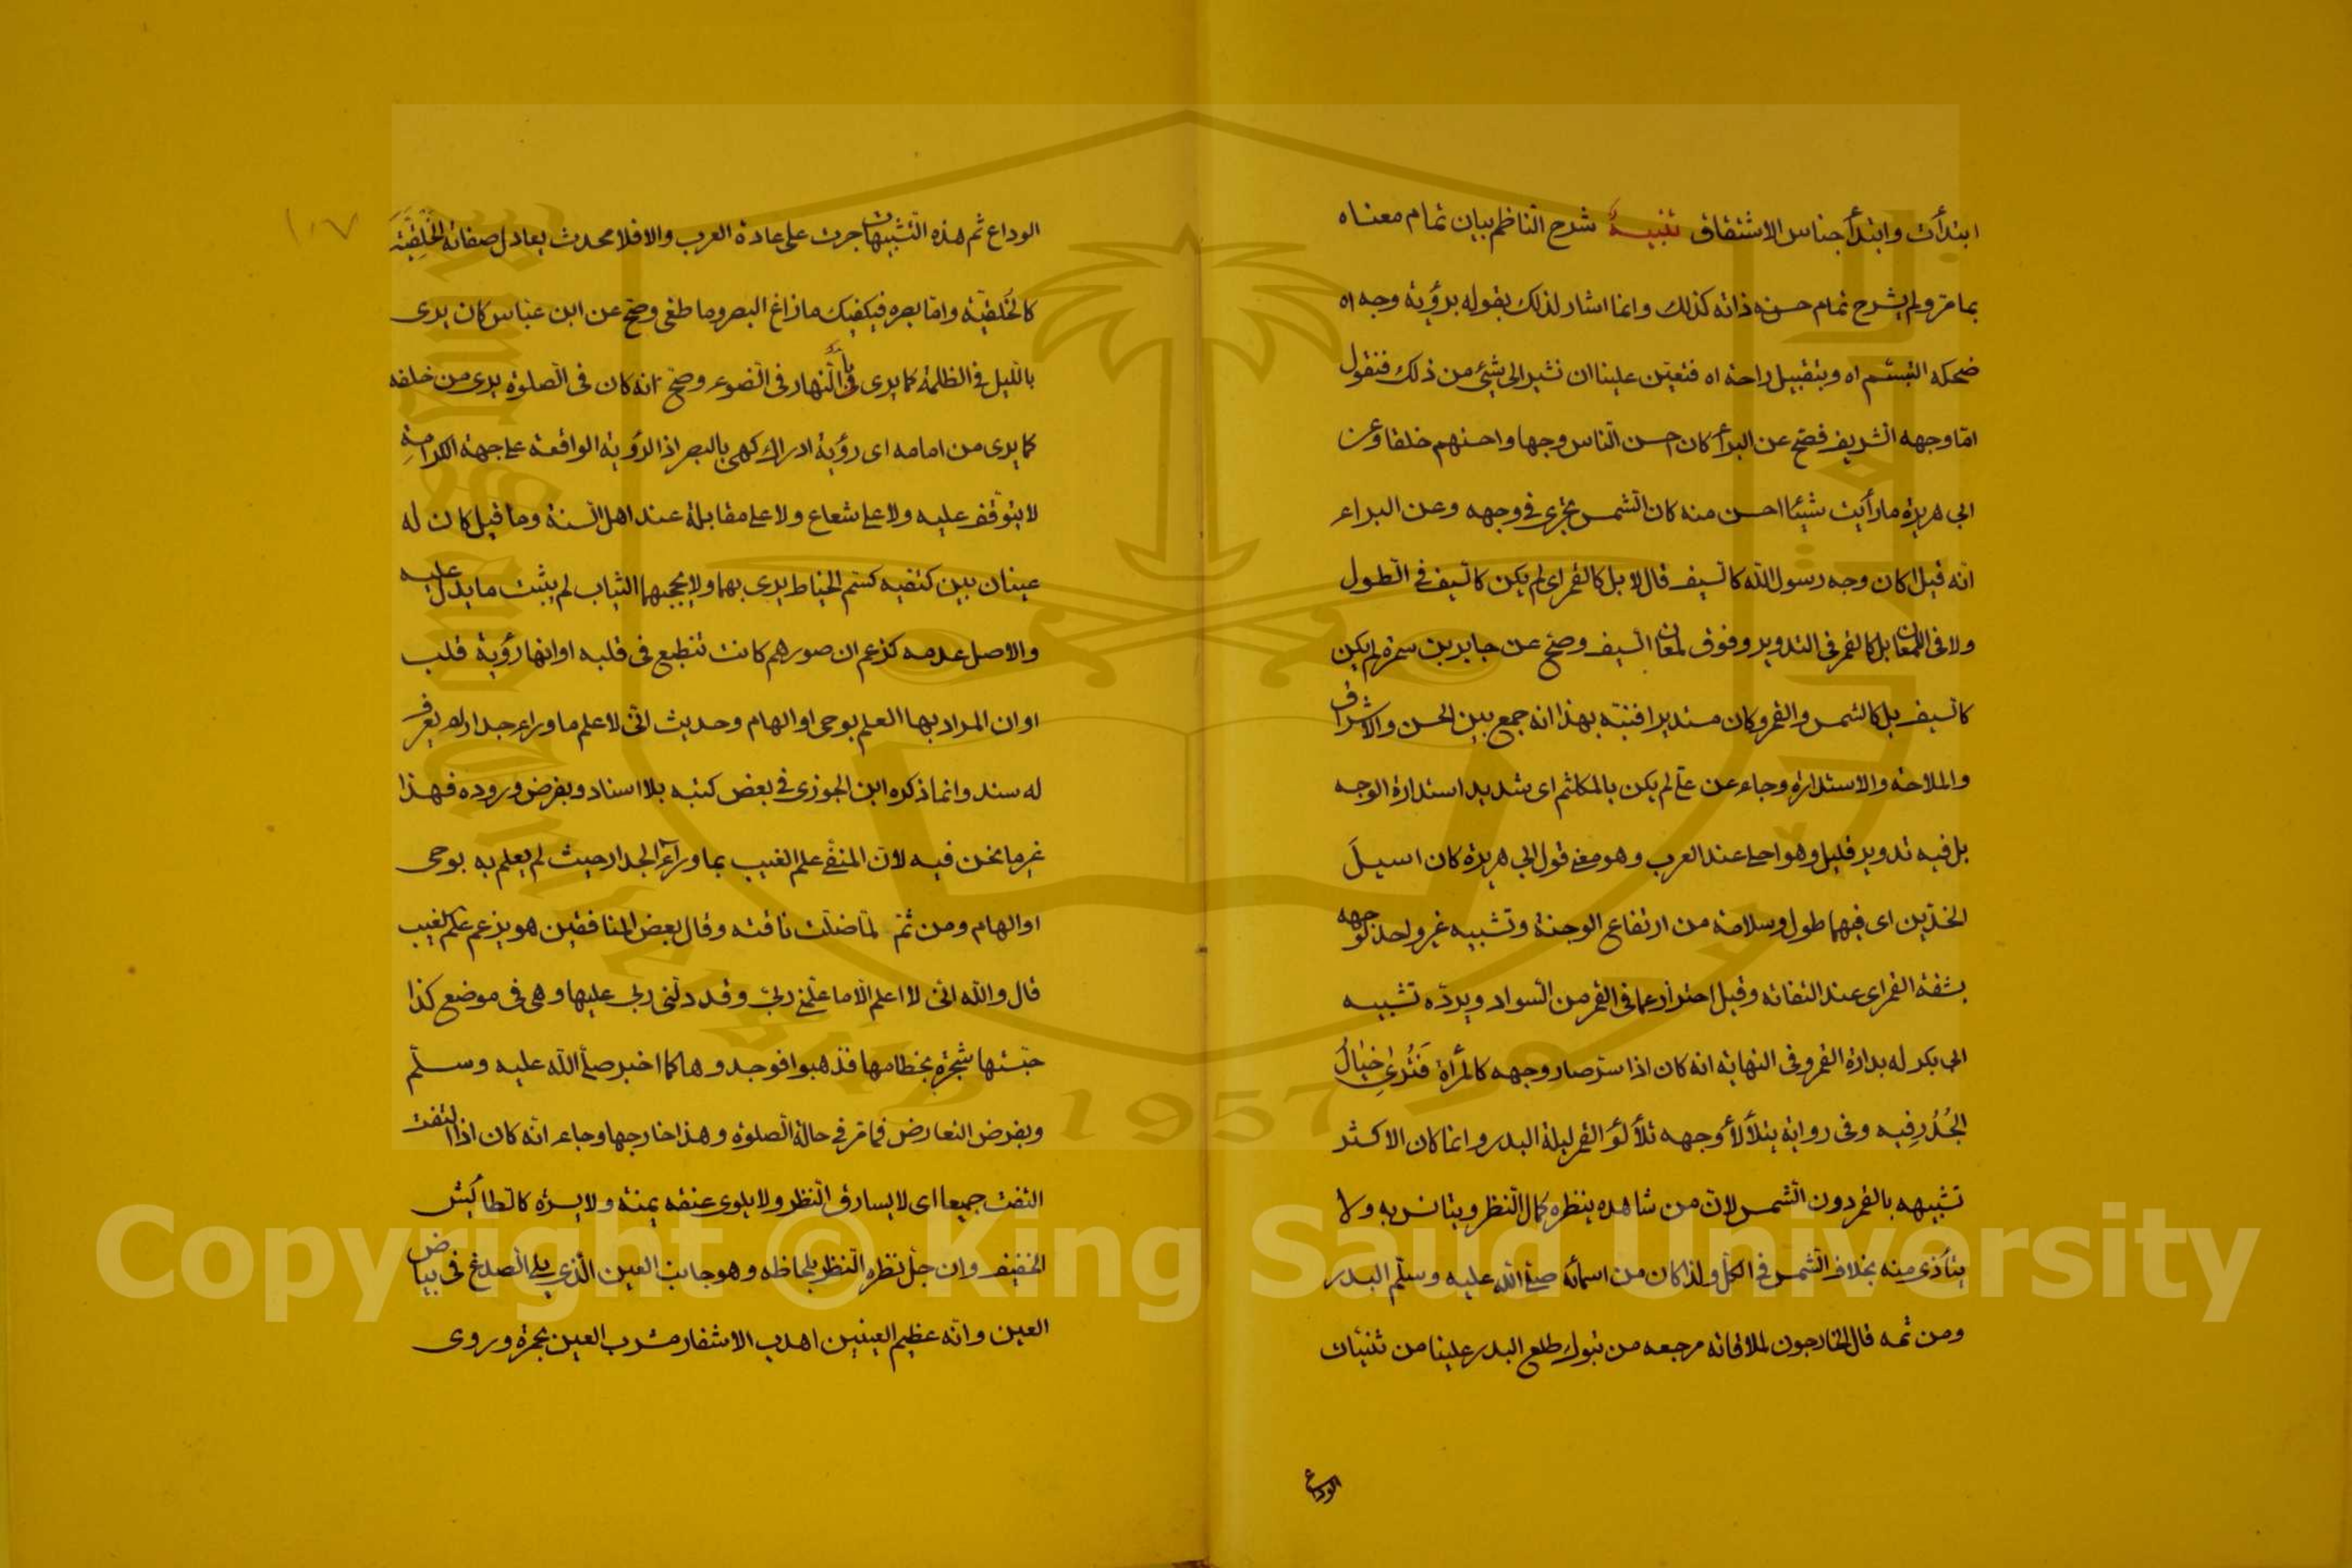 ابتدأت وابتدأ جناس الاشتقاق تنبيه شرح الناظم ببيان تمام معناه
بما مر ولم يشرح تمام حسن ذاته كذلك وانما اشار لذلك بقوله برؤية وجه اه
ضحكه التبسّم اه وبتقبيل راحة اه فتعيّن علينا ان نشير الى شيئ من ذلك فنقول
امّا وجهه الشريف فصحّ عن البراء كان احسن النّاس وجها واحسنهم خلقا وعن
ابى هريرة ما رأيت شيئا احسن منه كان الشمس تجرى فى وجهه وعن البراء
انّه قيل اكان وجه رسول الله كالسّيف قال لا بل كالقمر اى لم يكن كالسّيف فى الطول
ولا فى اللمعان بل كالقمر فى التدوير وفوق لمعان السّيف وصحّ عن جابر بن سمرة لم يكن
كالسّيف بل كالشمس والقمر وكان مستديرا فنبّه بهذا انه جمع بين الحسن والاشراق
والملاحة والاستدارة وجاء عن علىّ لم يكن بالمكلثم اى شديد استدارة الوجه
بل فيه تدوير قليل وهو احلى عند العرب وهو معنى قول ابى هريرة كان اسيل
الخدّين اى فيهما طول وسلامة من ارتفاع الوجنة وتشبيه غير واحد لوجهه
بشقة القمر اى عند التفاته وقيل احترازعما فى القمر من السّواد ويردّه تشبيه
ابى بكر له بدارة القمر وفى النهاية انه كان اذا سرّ صار وجهه كالمرأة فَتُرىٰ خيالُ
الجُدُرِ فيه وفى رواية يتلألأ وجهه تلألؤ القمر ليلة البدر وانما كان الاكثر
تشبيهه بالقمر دون الشّمس لانّ من شاهده ينظره كمال النّظر ويتانس به ولا
يتأذى منه بخلاف الشّمس فى الكلّ ولذا كان من اسمائه صلّى الله عليه وسلّم البدر
ومن ثمه قال الخارجون لملاقاته مرجعه من تبوك طلع البدر علينا من ثنيّات
الوداع
١٠٧
الوداع ثم هذه التّشبيهات جرت على عادة العرب والا فلا محدث يعادل صفاته الخَلْقيّة
كالخُلقيّة وامّا بصره فيكفيك ما زاغ البصر وما طغى وصحّ عن ابن عبّاس كان يرى
بالّليل فى الظلمة كما يرى بالنّهار فى الضوء وصحّ انه كان فى الصلوة يرى من خلفه
كما يرى من امامه اى رؤية ادراك كهى بالبصر اذ الرؤية الواقعة على جهة الكرامة
لا يتوقّف عليه ولا على شعاع ولا على مقابلة عند اهل السّنة وما قيل كان له
عينان بين كتفيه كسَم الخياط يرى بهما ولا يحجبهما الثياب لم يثبت ما يدلّ عليه
والاصل عدمه كزعم ان صورهم كانت تنطبع فى قلبه او انها رؤية قلب
او ان المراد بها العلم بوحى او الهام وحديث انّى لا اعلم ما وراء جدار لم يعرف
له سند وانما ذكره ابن الجوزى فى بعض كتبه بلا اسناد وبفرض وروده فهذا
غير ما نحن فيه لانّ المنفى علم الغيب بما وراء الجدار حيث لم يعلم به بوحى
او الهام ومن ثمّ لمّا ضلّت ناقته وقال بعض المنافقين هو يزعم علم الغيب
قال والله انّى لا اعلم الّا ما علّمنى ربّى وقد دلّنى ربى عليها وهى فى موضع كذا
حبستها شجرة بخطامها فذهبوا فوجدوها كما اخبر صلّى الله عليه وسلّم
وبفرض التعارض فما مرّ فى حالة الصلوة وهذا خارجها وجاء انّه كان اذا التفت
التفت جميعا اى لا يسارق النّظر ولا يلوى عنقه يمنة ولا يسرة كالطّائش
الخفيف وان جلّ نظره النّظر بلحاظه وهو جانب العين الّذى يلى الصّدغ فى بياض
العين وانّه عظيم العينين اهدب الاشفار مشرب العين بحمرة وروى
Copyright © King Saud University
1957